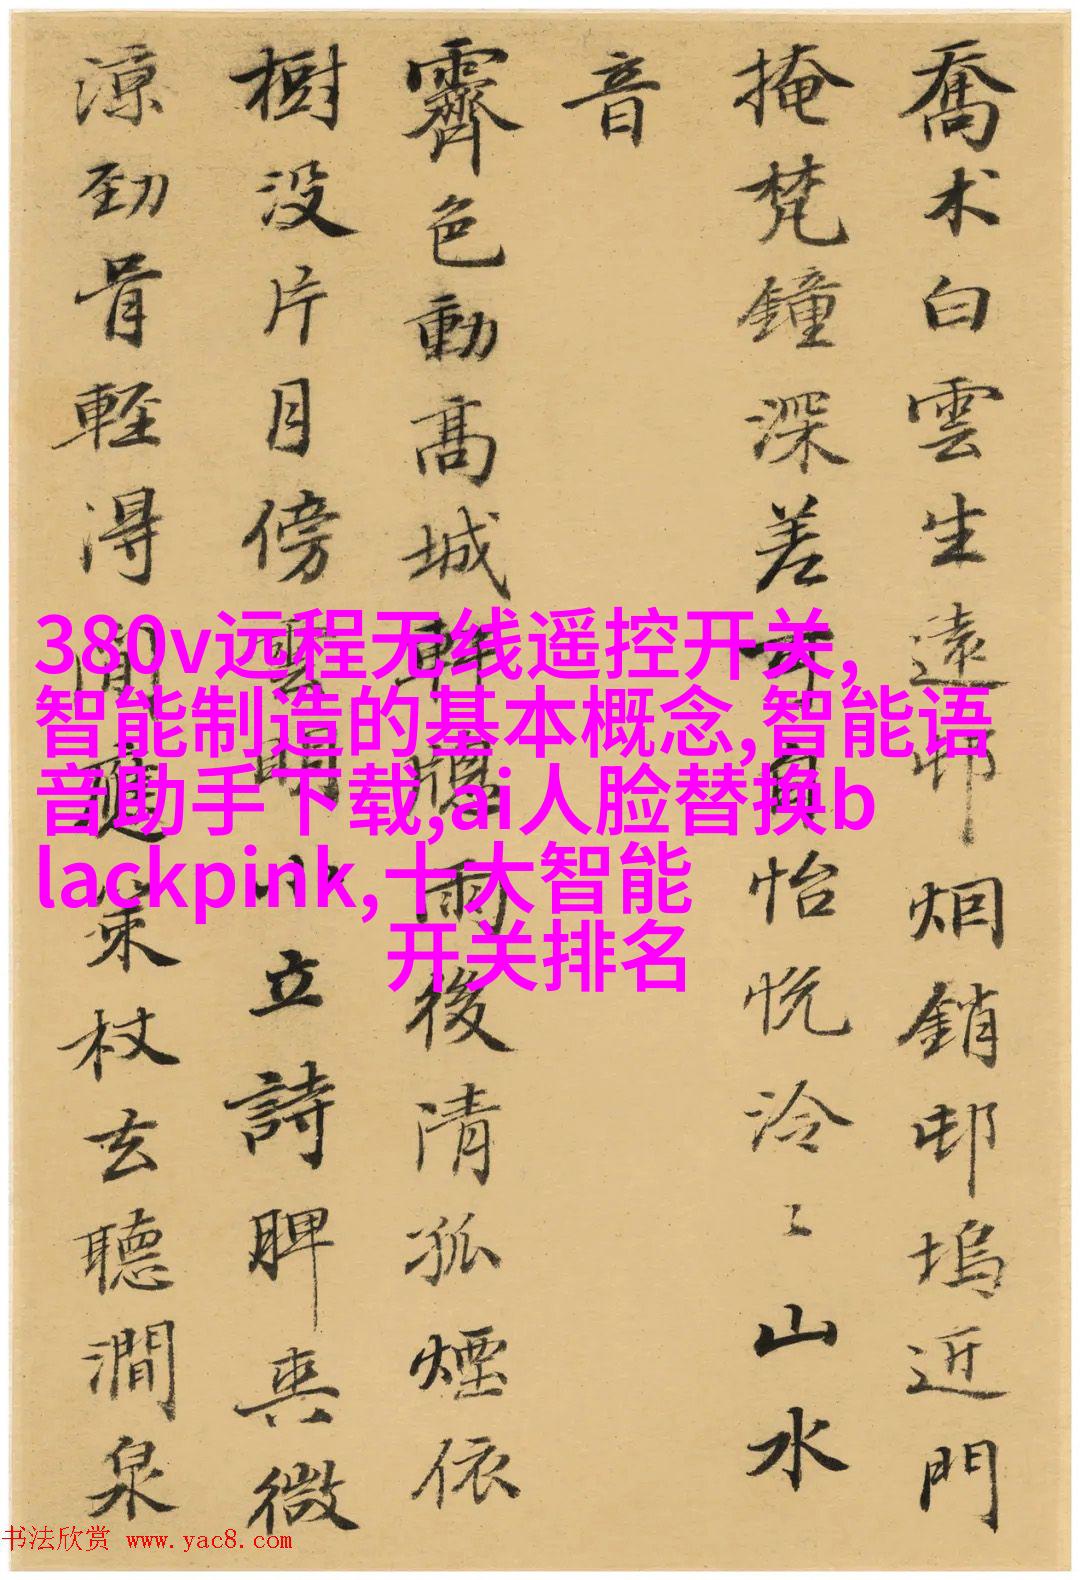 喬术白雲生遠邨烟銷邨塢近門
掩梵鐘深差可自怡悦泠〻山水
音
霽色動高城軒牕雨後清孤煙依
樹没片月傍雲明小立詩脾爽微
涼勁骨輕得閒策杖去聽澗泉
380v远程无线遥控开关,
智能制造的基本概念,智能语
音助手下载,ai人脸替换b
lackpink,十大智能
开关排名
书法欣赏 www.yac8.com